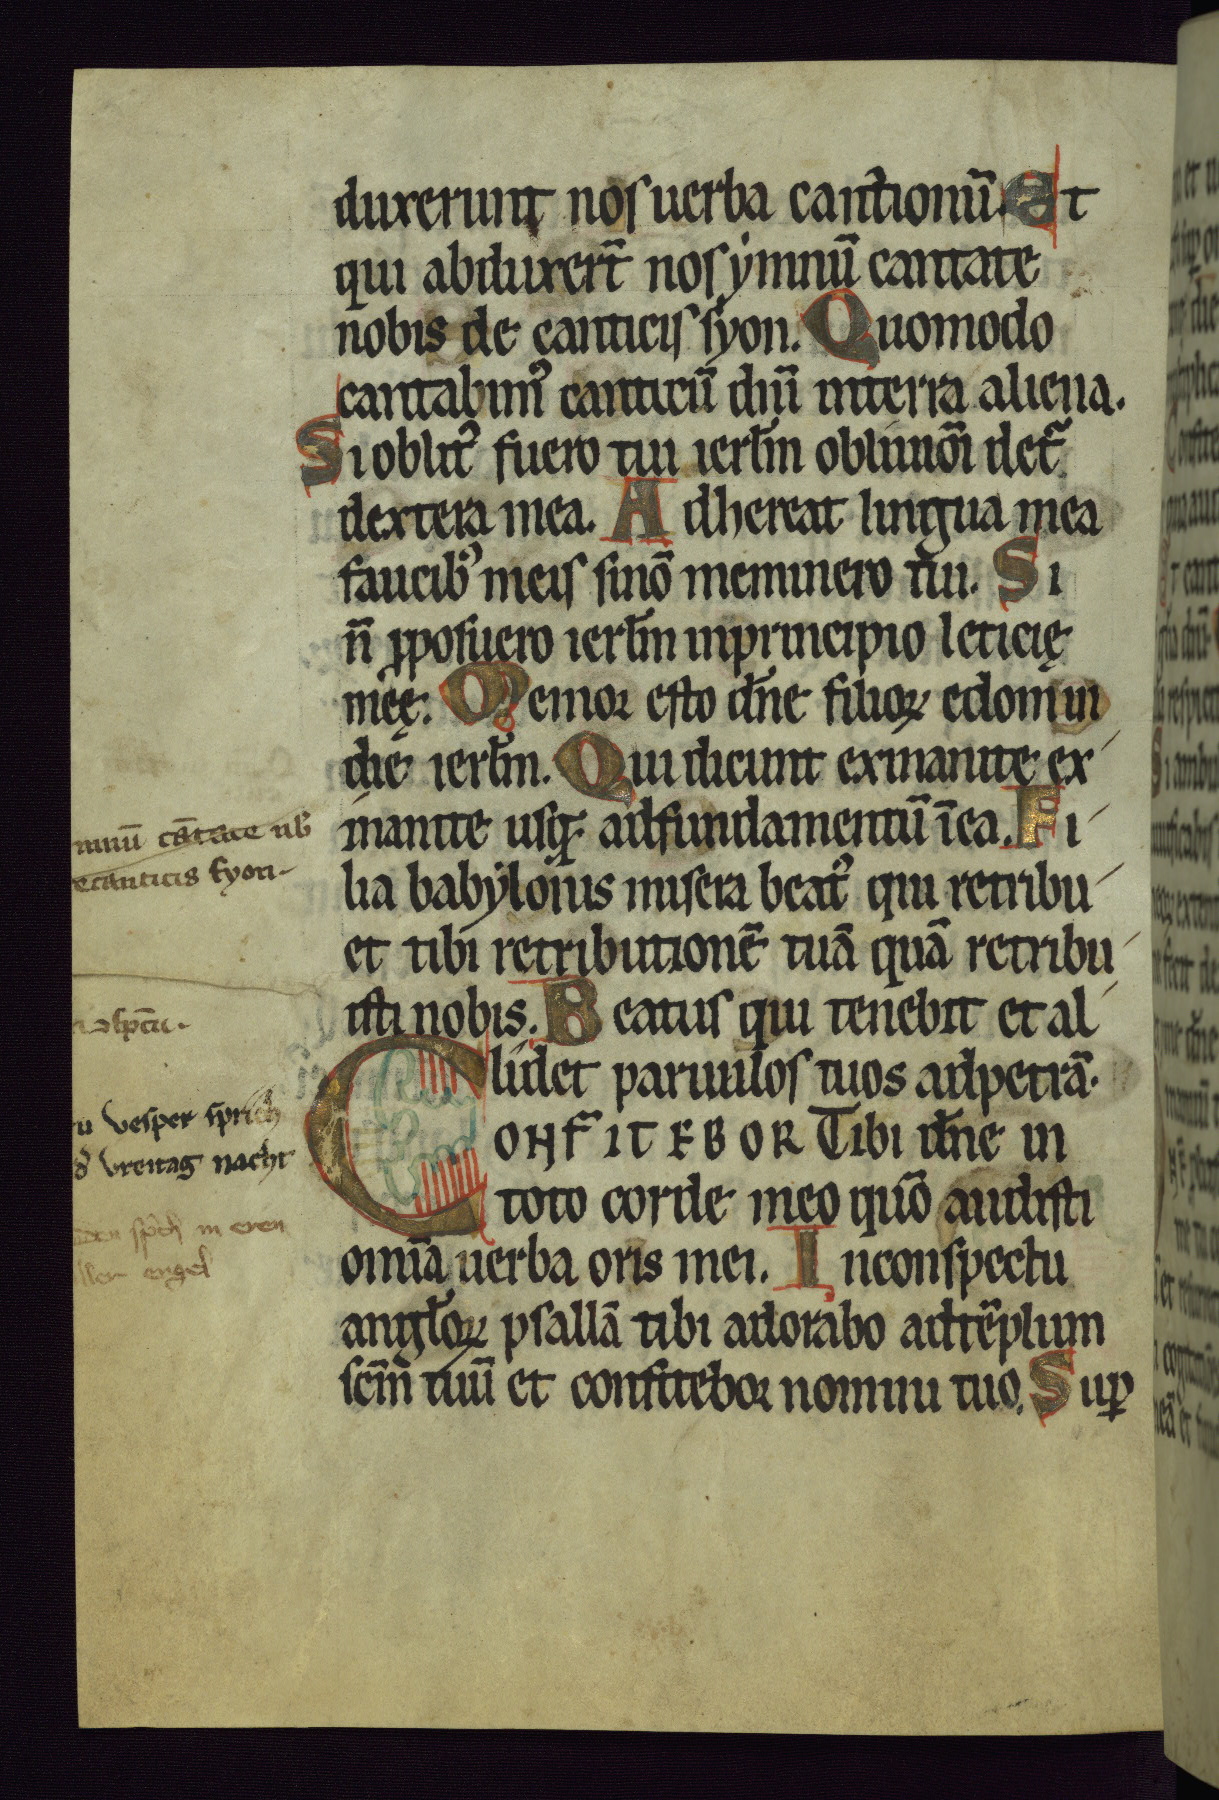 duxerunt nos uerba cantionū. Et
qui abduxert̄ nos ẏmnū cantate
nobis de canticis syon. Quomodo
cantabimꝰ canticū dn̄i interra aliena.
Si oblitꝰ fuero tui ierłm obliuioni det᷑
dextera mea. Adhereat lingua mea
faucibꝰ meis sinō meminero tui. Si
n̄ ꝓposuero ierłm inprincipio leticię
meę. Memor esto dn̄e filioꝝ edom in
die ierłm. Qui dicunt exinanite ex
inanite usqꝫ adfundamentū īea. Fi
lia babẏlonis misera beatꝰ qui retribu
et tibi retributionē tuā quā retribu
isti nobis. Beatus qui tenebit et al
lidet paruulos tuos adpetrā.
CONFITEBOR Tibi dn̄e in
toto corde meo quō audisti
omīa uerba oris mei. Inconspectu
angłoꝝ psallā tibi adorabo adtēplum
scm̄ tuū et confitebor nomini tuo. Suꝑ
mnū cātate nb̄
ecanticis syon
vesper sprich
vreitag nacht
in eren
ller engel